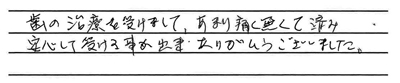 歯の治療を受けまして、あまり痛く無くて済み
安心して受ける事が出来ありがとうございました。